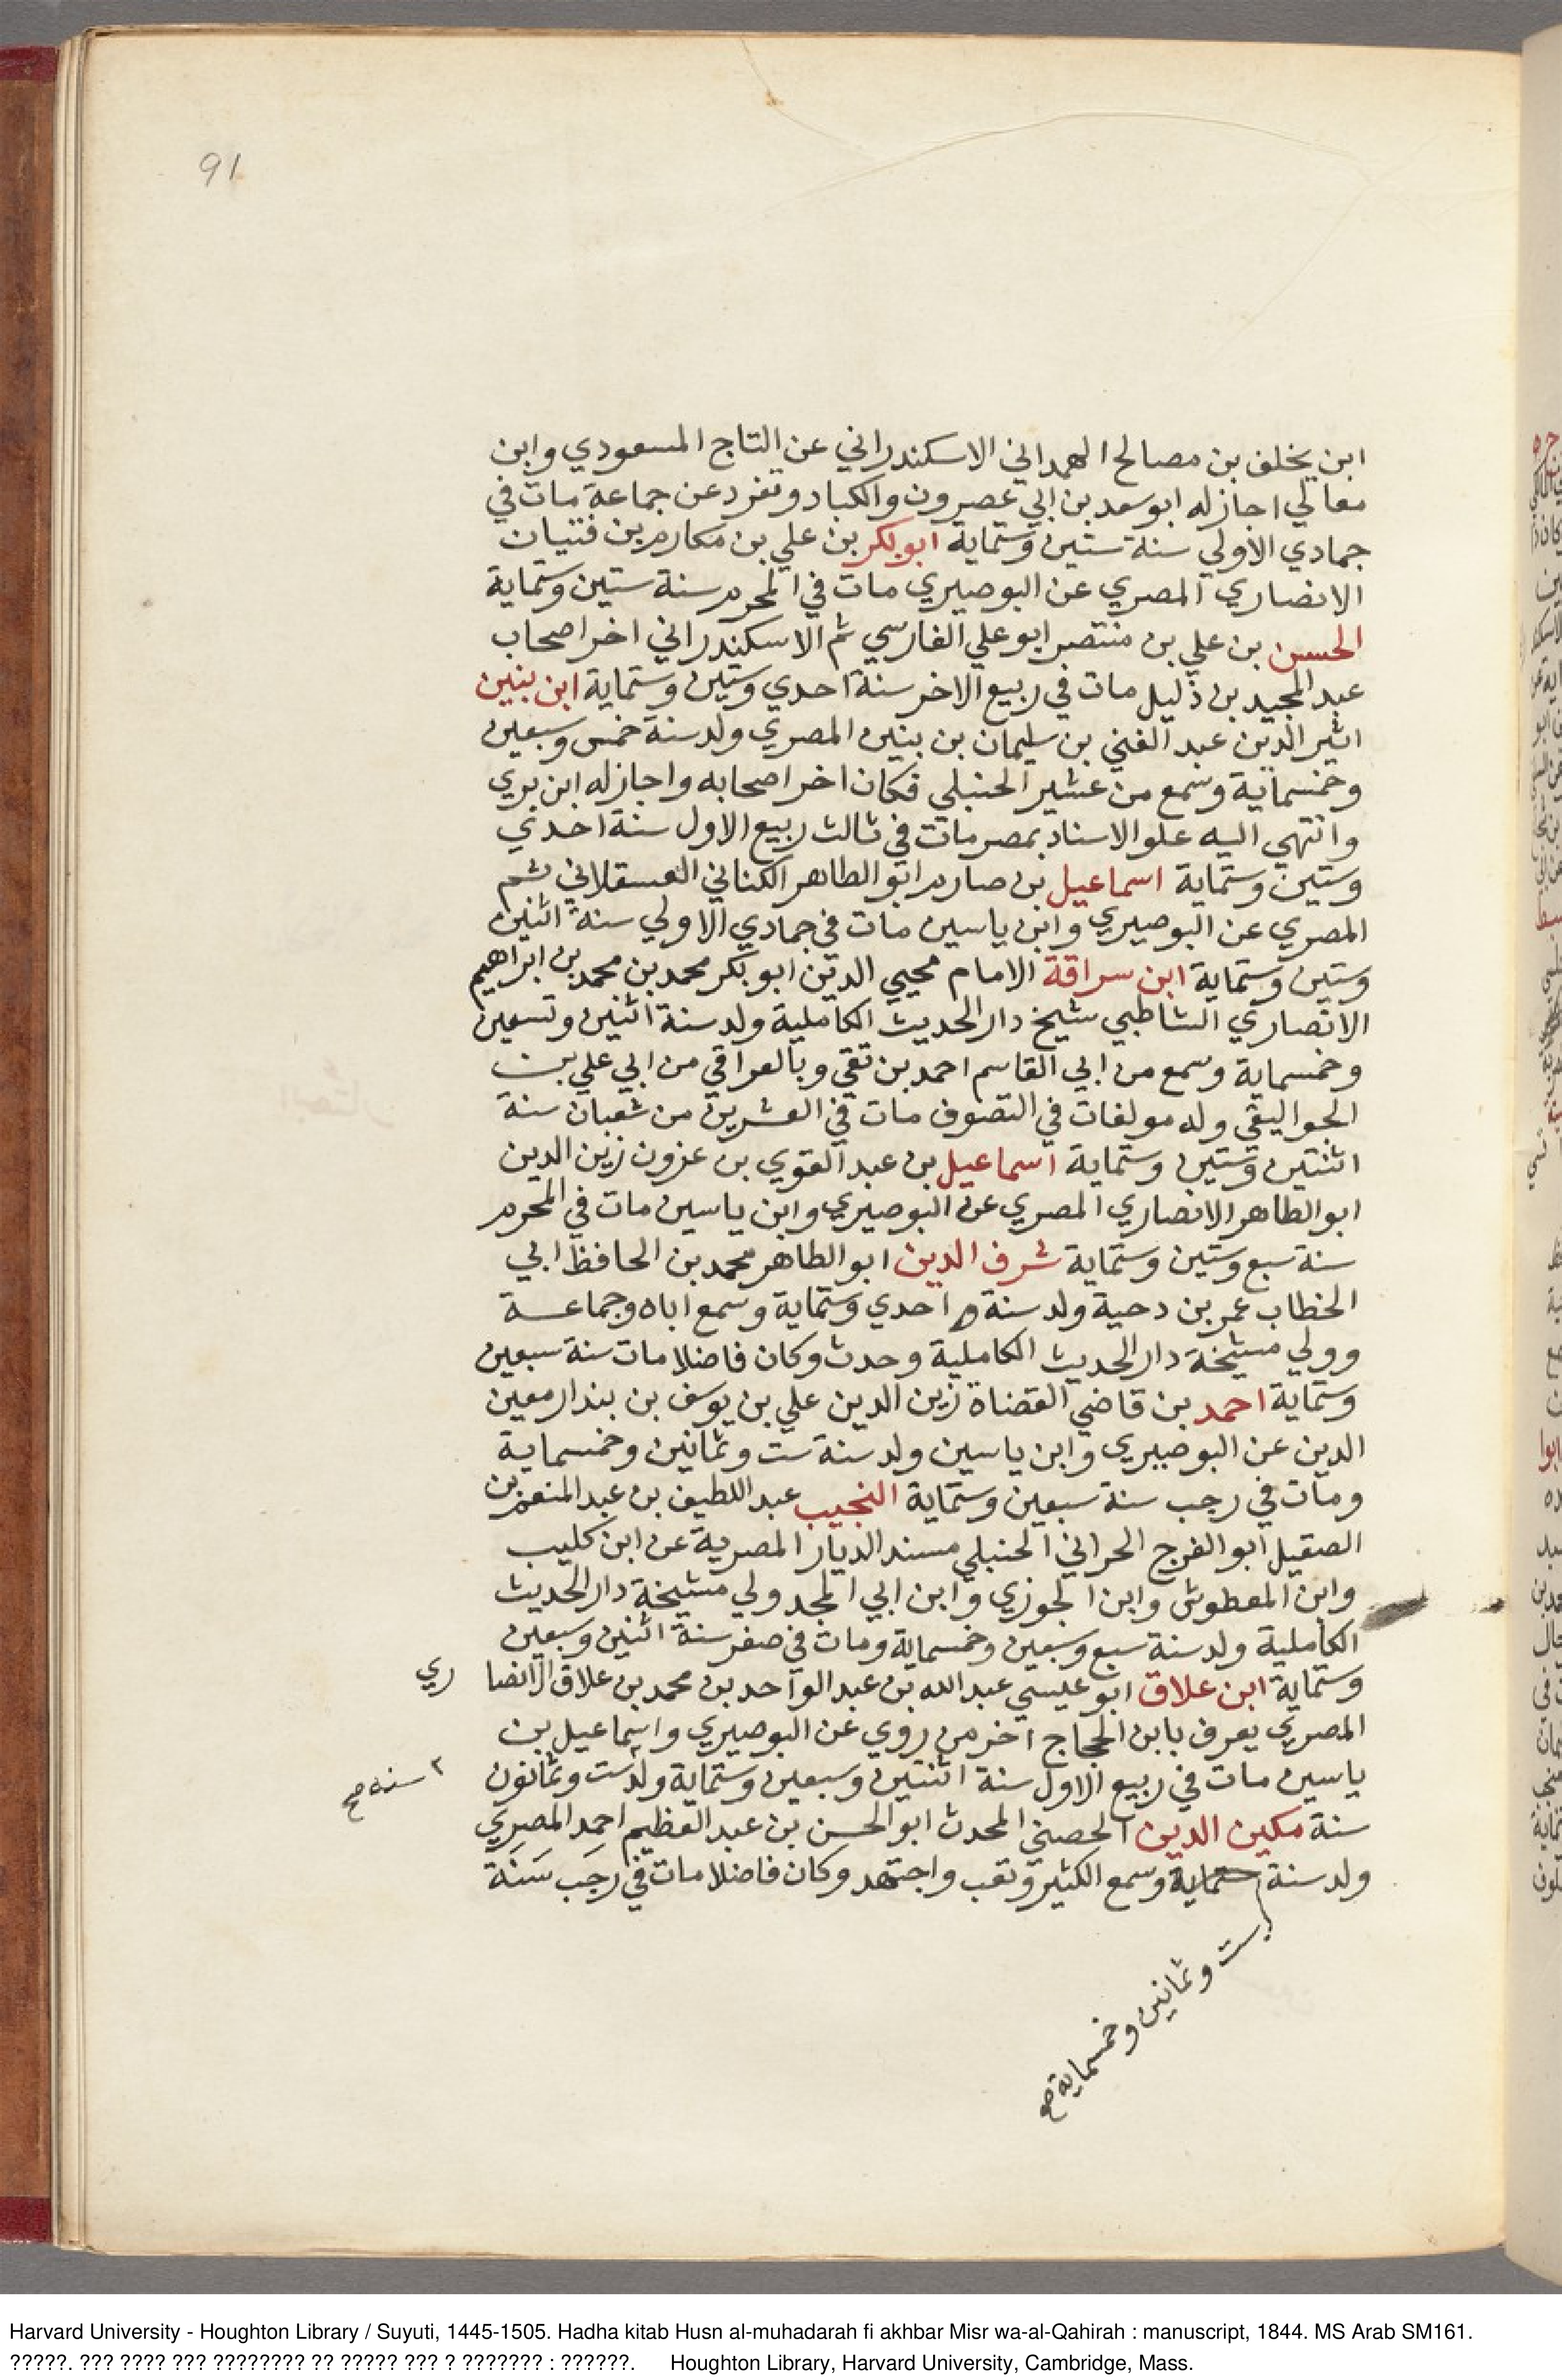 91
ابن يخلف بن مصالح الهمداني الاسكندراني عن التاج المسعودي وابن
معالي اجاز له ابو سعد بن ابي عصرون والكبار وتفرد عن جماعة مات في
جمادي الاولي سنة ستين وستماية ابو بكر بن علي بن مكارم بن فتيان
الانصاري المصري عن البوصيري مات في المحرم سنة ستين وستماية
الحسن بن علي بن منتصر ابو علي الفارسي ثم الاسكندراني اخر اصحاب
عبد المجيد بن ذليل مات في ربيع الاخر سنة احدي وستين وستماية ابن بنين
اثير الدين عبد الغني بن سليمان بن بنين المصري ولد سنة خمس وسبعين
وخمسماية وسمع من عشير الحنبلي فكان اخر اصحابه واجاز له ابن بري
وانتهي اليه علو الاسناد بمصر مات في ثالث ربيع الاول سنة احدي
وستين وستماية اسماعيل بن صارم ابو الطاهر الكناني العسقلاني ثم
المصري عن البوصيري وابن ياسين مات في جمادي الاولي سنة اثنين
وستين وستماية ابن سراقة الامام محيي الدين ابو بكر محمد بن محمد بن ابراهيم
الانصاري الشاطبي شيخ دار الحديث الكاملية ولد سنة اثنين وتسعين
وخمسماية وسمع من ابي القاسم احمد بن تقي وبالعراقي من ابي علي بن
الجواليقي وله مولفات في التصوف مات في العشرين من شعبان سنة
اثنتين وستين وستماية اسماعيل بن عبد القوي بن عزون زين الدين
ابو الطاهر الانصاري المصري عن البوصيري وابن ياسين مات في المحرم
سنة سبع وستين وستماية شرف الدين ابو الطاهر محمد بن الحافظ ابي
الخطاب عمر بن دحية ولد سنة احدي وستماية وسمع اباه وجماعة
وولي مشيخة دار الحديث الكاملية وحدث وكان فاضلا مات سنة سبعين
وستماية احمد بن قاضي القضاة زين الدين علي بن يوسف بن بندار معين
الدين عن البوصيري وابن ياسين ولد سنة ست وثمانين وخمسماية
ومات في رجب سنة سبعين وستماية النجيب عبد اللطيف بن عبد المنعم بن
الصقيل ابو الفرج الحراني الحنبلي مسند الديار المصرية عن ابن كليب
وابن المعطوش وابن الجوزي وابن ابي المجد ولي مشيخة دار الحديث
الكاملية ولد سنة سبع وسبعين وخمسماية ومات في صفر سنة اثنين وسبعين
وستماية ابن علاق ابو عيسي عبد الله بن عبد الواحد بن محمد بن علاق الانصا ري
المصري يعرف بابن الحجاج اخر من روي عن البوصيري واسماعيل بن
ياسين مات في ربيع الاول سنة اثنتين وسبعين وستماية وله ست وثمانون
٢ سنه صح
سنة مكين الدين الحصني المحدث ابو الحسن بن عبد العظيم احمد المصري
ولد سنة ستماية وسمع الكثير وتعب واجتهد وكان فاضلا مات في رجب سنة
ست وثمانين وخمسماية صح
Harvard University - Houghton Library / Suyuti, 1445-1505. Hadha kitab Husn al-muhadarah fi akhbar Misr wa-al-Qahirah : manuscript, 1844. MS Arab SM161.
?????. ??? ???? ??? ???????? ?? ????? ??? ? ??????? : ??????. Houghton Library, Harvard University, Cambridge, Mass.